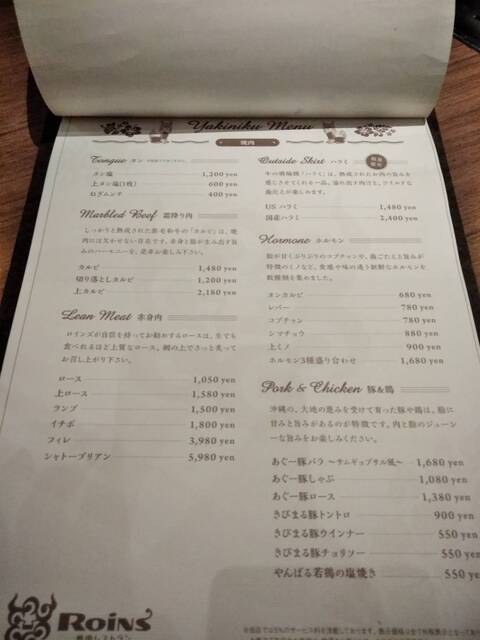 Yakiniku Menu
焼肉
Tongue タン
タン塩 1,200 yen
上タン塩(1枚) 600 yen
ねぎムンチ 400 yen
Marbled Beef 霜降り肉
しっかりと熟成された黒毛和牛の「カルビ」は、焼
肉には欠かせない音楽です。赤身と脂が生み出す旨
みのハーモニーを、是非お楽しみ下さい。
カルビ 1,480 yen
切り落としカルビ 1,200 yen
上カルビ 2,180 yen
Lean Meat 赤身肉
ロインズが自信を持ってお勧めするロースは、生でも
食べれるほど上質なロース。網の上でさっと炙って
お召し上がり下さい。
ロース 1,050 yen
上ロース 1,580 yen
ランプ 1,500 yen
イチボ 1,800 yen
フィレ 3,980 yen
シャトーブリアン 5,980 yen
Outside Skirt ハラミ
牛の横隔膜「ハラミ」は、熟成されたお肉の旨みを
感じさせてくれる一品。溢れ出す肉汁と、ワイルドな
歯応えが楽しめます。
US ハラミ 1,480 yen
国産ハラミ 2,400 yen
Hormone ホルモン
脂が甘くぷりぷりのコプチャンや、歯ごたえと旨みが
特徴のミノなど、食感や味の違う新鮮なホルモンを
数種類を集めました。
タンカルビ 680 yen
レバー 780 yen
コプチャン 780 yen
シマチョウ 880 yen
上ミノ 900 yen
ホルモン3種盛り合わせ 1,680 yen
Pork & Chicken 豚&鶏
沖縄の、大地の恵みを受けて育った豚や鶏は、脂に
甘みと旨みがあるのが特徴です。肉と脂のジューシ
ーな旨みをお楽しみください。
あぐー豚バラ ～サムギョプサル風～ 1,680 yen
あぐー豚しゃぶ 1,080 yen
あぐー豚ロース 1,380 yen
きびまる豚トントロ 900 yen
きびまる豚ウインナー 550 yen
きびまる豚チョリソー 550 yen
やんばる若鶏の塩焼き 550 ye
Roins
焼肉レストラン
※当店では5%のサービス料を頂戴しております。表示価格は全て外税表示となってお